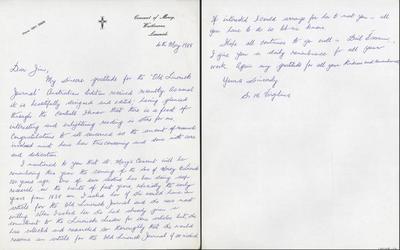 Convent of Mercy,
Westbourne,
Limerick
6th May 1988
Dear Jim,
My sincere gratitude for the "Old Limerick
Journal" Australian Edition received recently. As usual
it is beautifully designed and edited; having glanced
through the contents I know that there is a feast of
interesting and enlightening reading in store for me.
Congratulations to all concerned as the amount of research
involved must have been time consuming and done with care
and dedication.
I mentioned to you that St. Mary's Convent will be
remembering this year the coming of the Srs of Mercy
150 years ago. One of our sisters has been doing
research on the events of past years, specially the early
years from 1838 on. I asked her if she would have an
article for the Old Limerick Journal and she was most
willing. When I asked her she had already given a
commitment to the Limerick Leader for some articles but she
has collected and researched so thoroughly that she would
have an article for the Old Limerick Journal if so wished.
If interested I could arrange for her to meet you - all
you have to do is let me know.
Hope all continues to go well -
I give you a daily remembrance for all your
work. Again my gratitude for all your kindness and remembrance
Yours Sincerely
Sr. M.